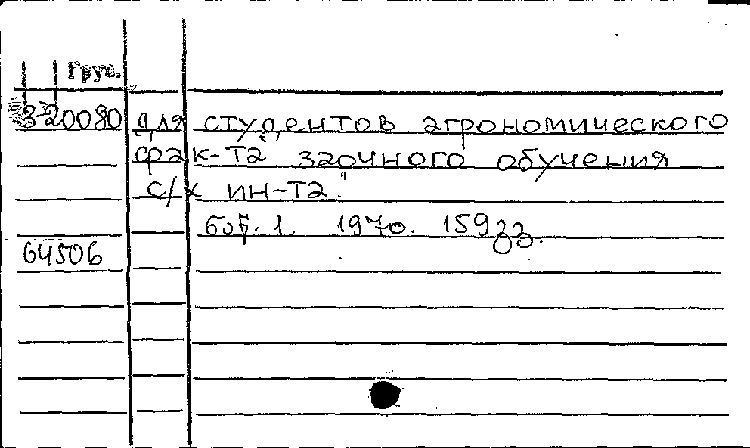 Груз.
320080 для студентов агрономического
фак-та заочного обучения
с/х ин-та."
1970. 159
64506